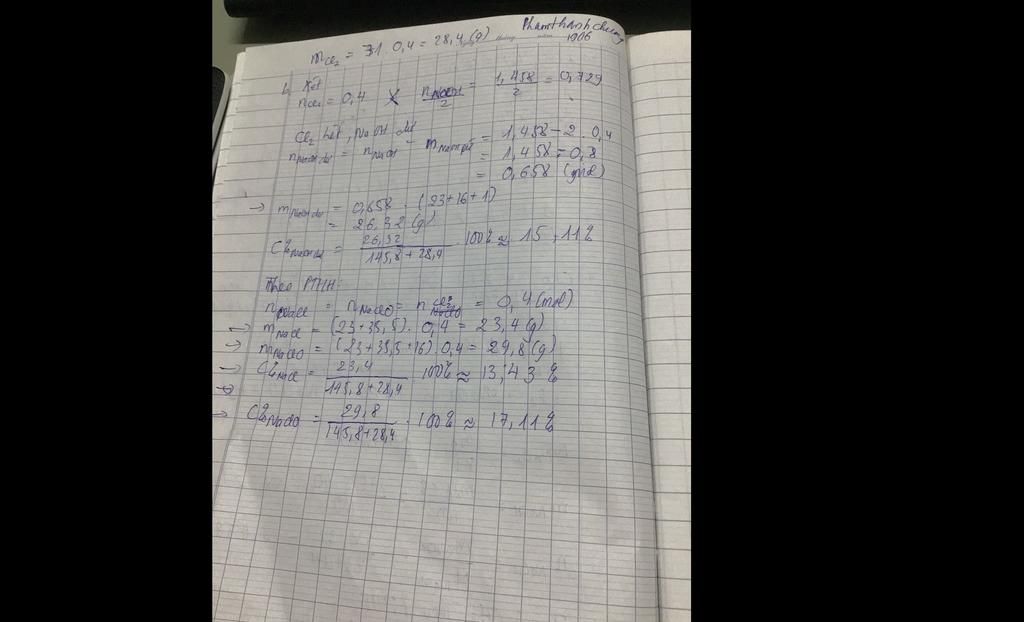 Phamthanhchuong
1906
m Cl₂ = 71 . 0,4 = 28,4 (g)
b, Xét
n Cl₂ = 0,4 < n NaOH / 2 = 1,458 / 2 = 0,729
Cl₂ hết, NaOH dư
n NaOH dư = n NaOH - = 1,458 - 2 . 0,4
= 1,458 - 0,8
= 0,658 (mol)
→ m NaOH dư = 0,658 . (23+16+1)
= 26,32 (g)
C% NaOH dư = 26,32 / 145,8 + 28,4 . 100% ≈ 15,11%
Theo PTHH:
n NaCl = n NaClO = n Cl₂ = 0,4 (mol)
→ m NaCl = (23+35,5) . 0,4 = 23,4 (g)
→ m NaClO = (23+35,5+16) . 0,4 = 29,8 (g)
→ C% NaCl = 23,4 / 145,8 + 28,4 . 100% ≈ 13,43%
→ C% NaClO = 29,8 / 145,8+28,4 . 100% ≈ 17,11%